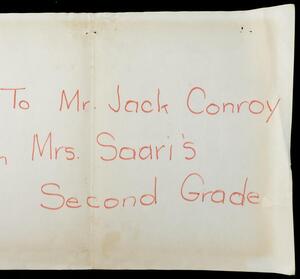 To Mr. Jack Conroy
Mrs. Saari's
Second Grade